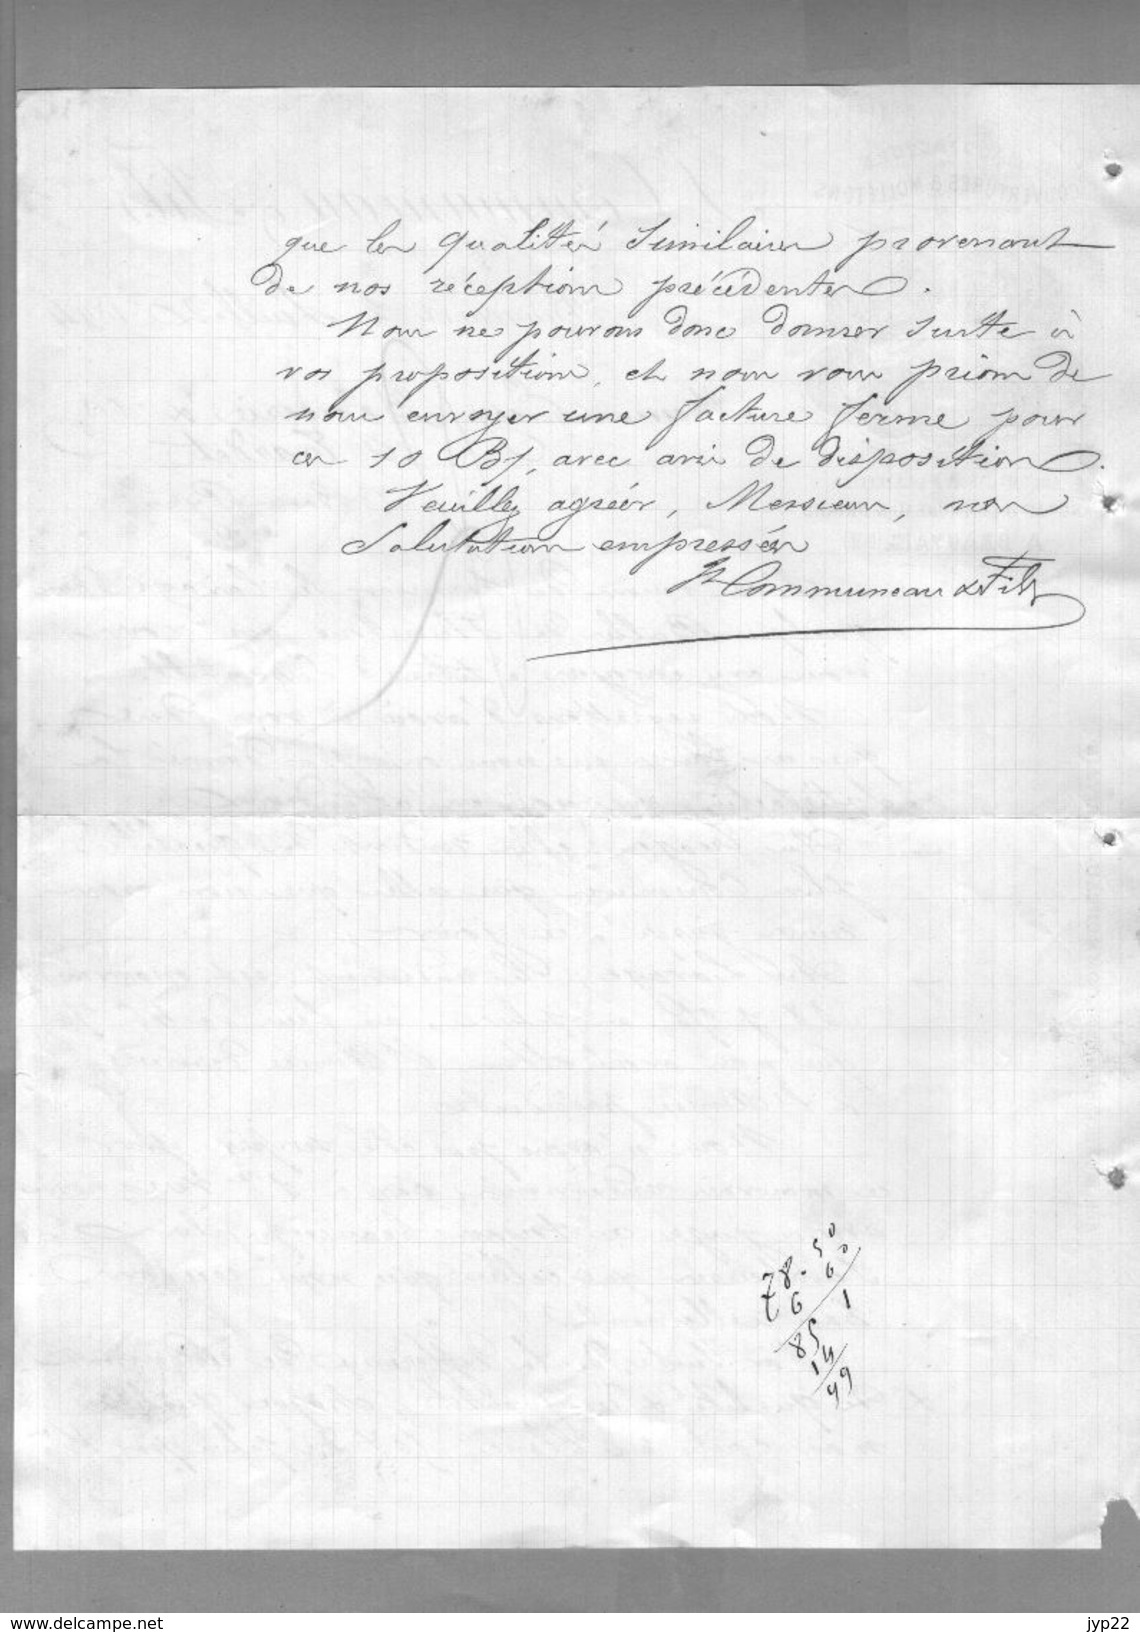 que les qualités similaires provenant
de nos réceptions précédentes.
Nous ne pouvons donc donner suite à
vos propositions, et nous vous prions de
nous envoyer une facture ferme pour
ces 10 B/, avec avis de disposition.
Veuillez agréer, Messieurs, nos
Salutations empressées
Communeau & Fils
78.50
6 60
85 1
14
99
www.delcampe.net
jyp22